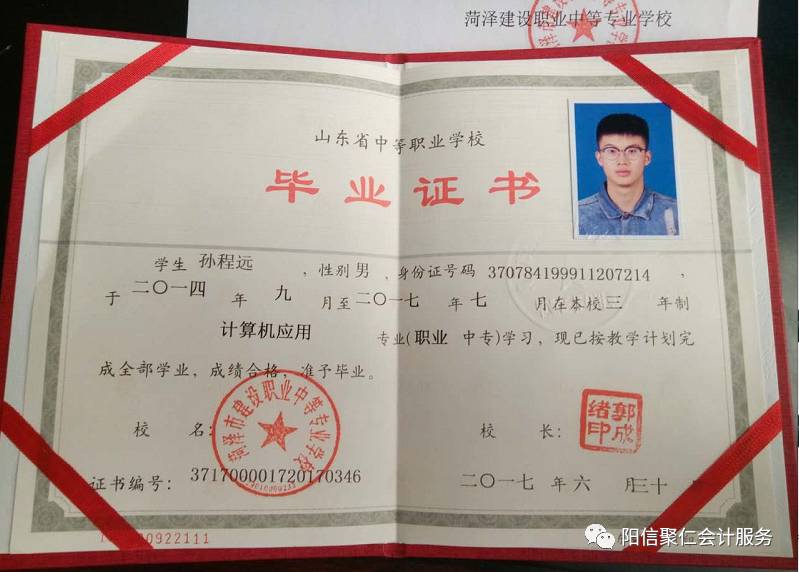 菏泽建设职业中等专业学校
山东省中等职业学校
毕业证书
学生 孙程远 ，性别 男 ，身份证号码 370784199911207214 ，
于 二〇一四 年 九 月至 二〇一七 年 七 月在本校 三 年制
计算机应用 专业(职业 中专)学习，现已按教学计划完
成全部学业，成绩合格，准予毕业。
校 名：
菏泽市建设职业中等专业学校
校 长：
郭成绪印
证书编号：371700001720170346
二〇一七 年 六 月 三十
00922111
阳信聚仁会计服务